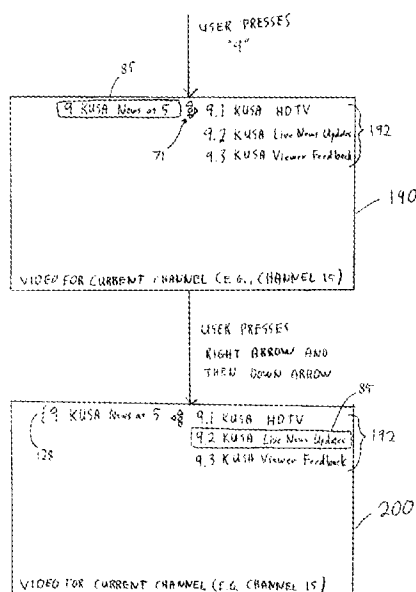 USER PRESSES
"9"
85
9 KUSA News at 5
9.1 KUSA HDTV
9.2 KUSA Live News Updates
9.3 KUSA Viewer Feedback
192
71
190
VIDEO FOR CURRENT CHANNEL (E.G., CHANNEL 15)
USER PRESSES
RIGHT ARROW AND
THEN DOWN ARROW
85
9 KUSA News at 5
9.1 KUSA HDTV
9.2 KUSA Live News Updates
9.3 KUSA Viewer Feedback
192
128
200
VIDEO FOR CURRENT CHANNEL (E.G. CHANNEL 15)